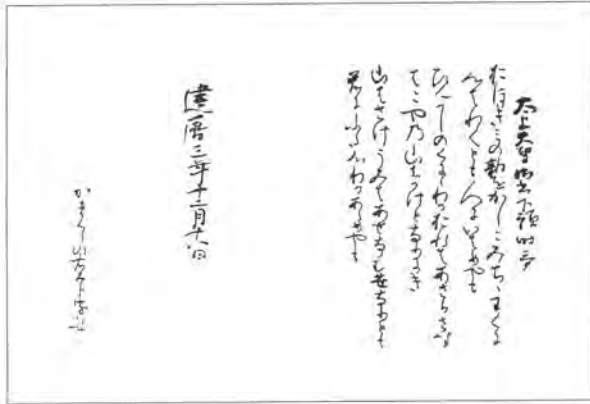 太上天皇御書下預時哥
おほきみの勅をかしこみちゝわくに
心はわくとも人にいはめやも
ひんかしのくにゝわかをれはあさひさす
はこや乃山のかけとなりにき
山はさけうみはあせなむ世なりとも
君にふた心わかあらめやも
建暦三年十二月十八日
かまくら右大臣家集